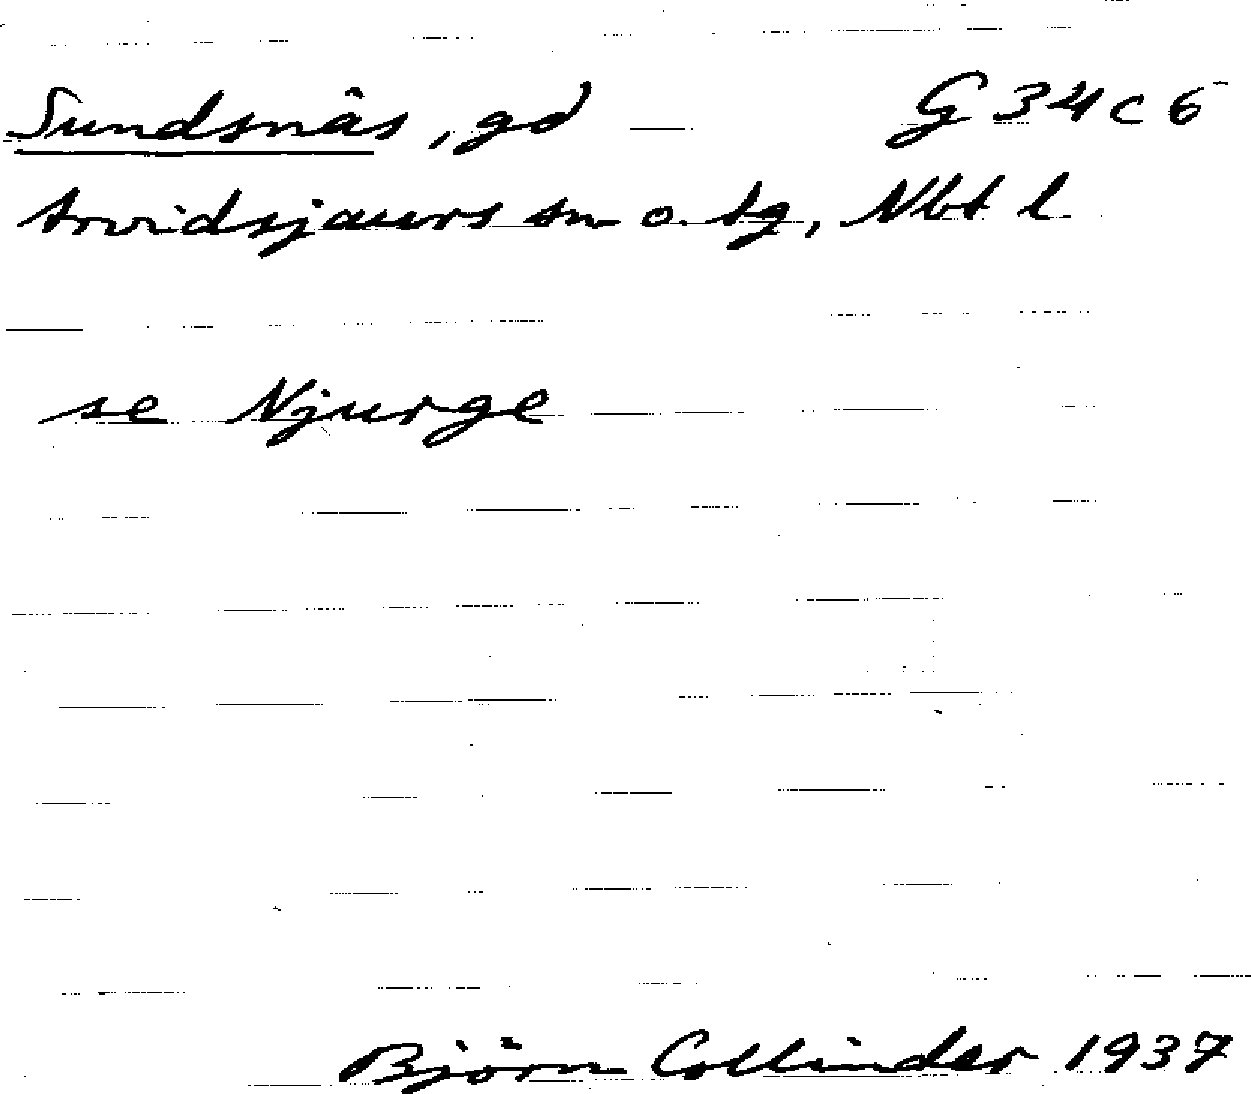 Sundsnäs, gd G 34 c 6
Arvidsjaurs sn o. tg, Nbt l.
se Njurge
Björn Collinder 1937